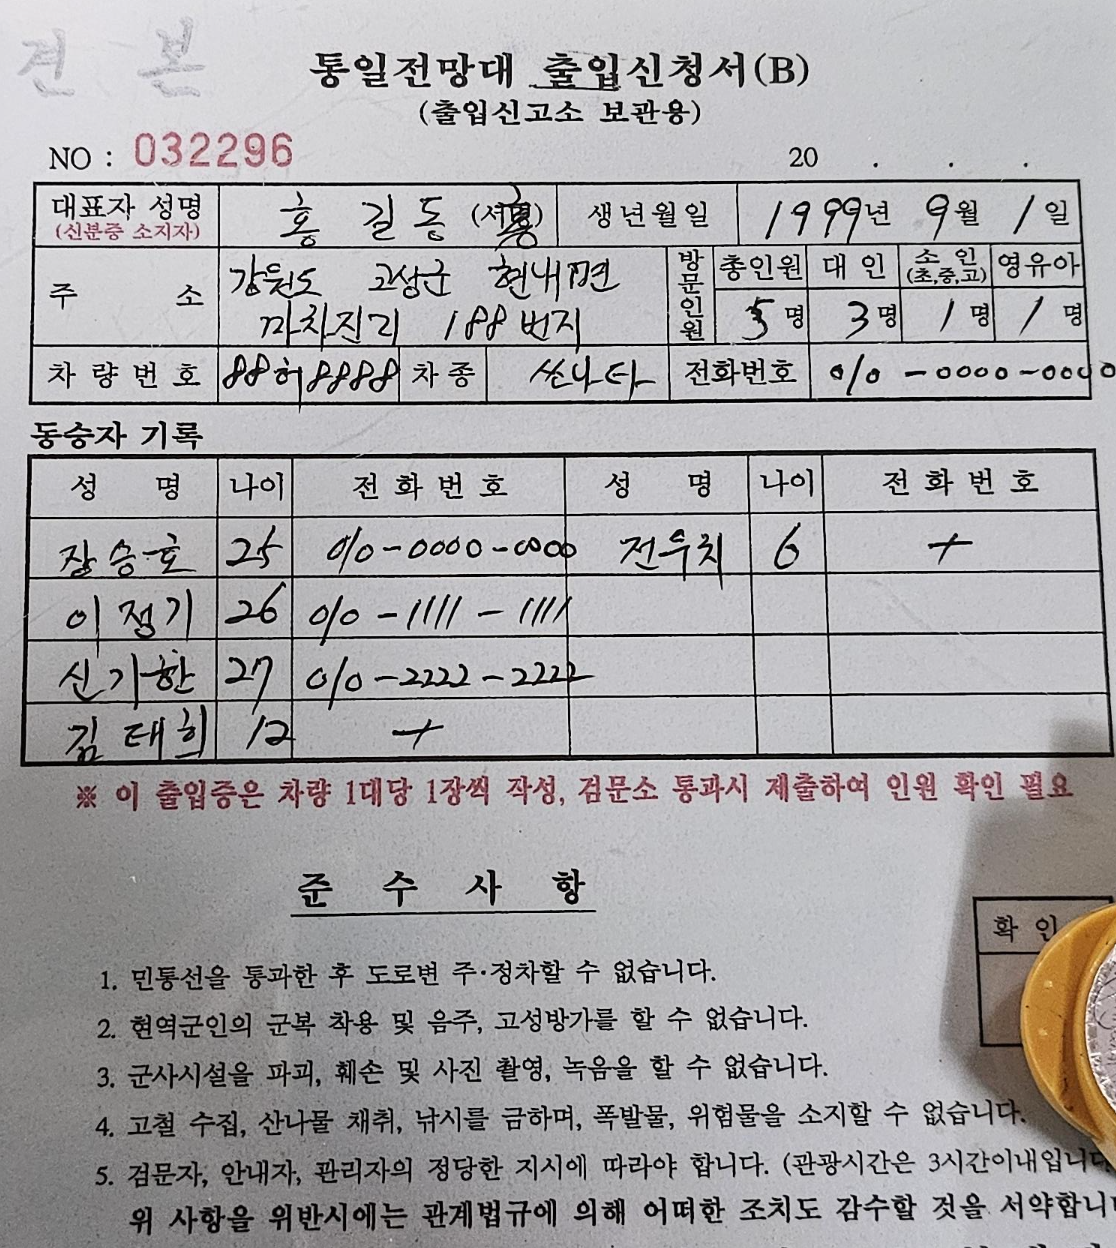 견 본
통일전망대 출입신청서(B)
(출입신고소 보관용)
NO : 032296 20 . . .
대표자 성명 홍 길 동 (서명) 생년월일 1999년 9월 1일
(신분증 소지자)
주 소 강원도 고성군 현내면 방문인원 총인원 대 인 소 인 영유아
(초,중,고)
마차진리 188번지 5명 3명 1명 1명
차 량 번 호 88허8888 차 종 쏘나타 전화번호 010-0000-0000
동승자 기록
성 명 나이 전 화 번 호 성 명 나이 전 화 번 호
장승호 25 010-0000-0000 전우치 6 +
이정기 26 010-1111-1111
신기한 27 010-2222-2222
김태희 12 +
※ 이 출입증은 차량 1대당 1장씩 작성, 검문소 통과시 제출하여 인원 확인 필요
준 수 사 항
확 인
1. 민통선을 통과한 후 도로변 주·정차할 수 없습니다.
2. 현역군인의 군복 착용 및 음주, 고성방가를 할 수 없습니다.
3. 군사시설을 파괴, 훼손 및 사진 촬영, 녹음을 할 수 없습니다.
4. 고철 수집, 산나물 채취, 낚시를 금하며, 폭발물, 위험물을 소지할 수 없습니다.
5. 검문자, 안내자, 관리자의 정당한 지시에 따라야 합니다. (관광시간은 3시간이내입니다
위 사항을 위반시에는 관계법규에 의해 어떠한 조치도 감수할 것을 서약합니